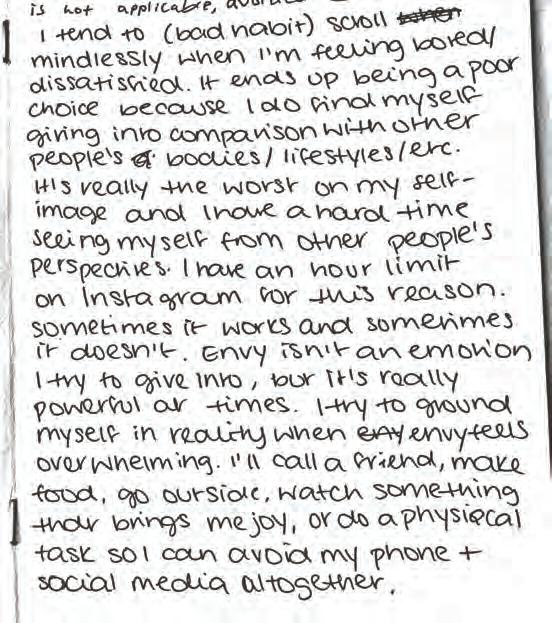 is not applicable,
I tend to (bad habit) scroll when
mindlessly when I'm feeling bored/
dissatisfied. It ends up being a poor
choice because I do find myself
giving into comparison with other
people's bodies/lifestyles/etc.
It's really the worst on my self-
image and I have a hard time
seeing myself from other people's
perspectives. I have an hour limit
on Instagram for this reason.
sometimes it works and sometimes
it doesn't. Envy isn't an emotion
I try to give into, but it's really
powerful at times. I try to ground
myself in reality when envy feels
overwhelming. I'll call a friend, make
food, go outside, watch something
that brings me joy, or do a physical
task so I can avoid my phone +
social media altogether.